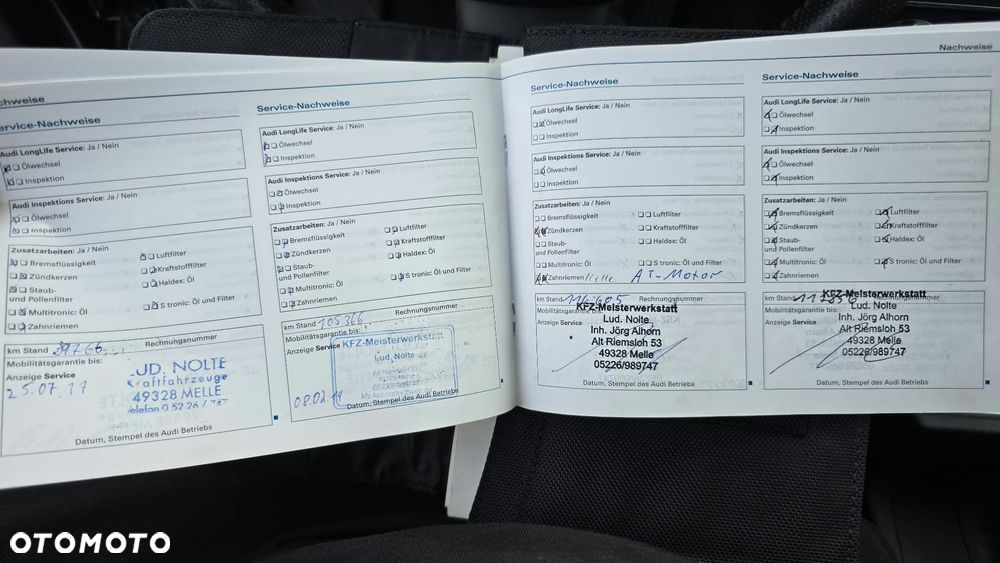 chweise
ervice-Nachweise
Audi LongLife Service: Ja / Nein
Ölwechsel
Inspektion
Audi Inspektions Service: Ja / Nein
Ölwechsel
Inspektion
Zusatzarbeiten: Ja / Nein
Bremsflüssigkeit
Luftfilter
Zündkerzen
Kraftstofffilter
Staub-
und Pollenfilter
Haldex: Öl
Multitronic: Öl
S tronic: Öl und Filter
Zahnriemen
km Stand
Rechnungsnummer
Mobilitätsgarantie bis:
Anzeige Service
25.07.17
UD. NOLTE
Kraftfahrzeuge
49328 MELLE
Datum, Stempel des Audi Betriebs
Service-Nachweise
Audi LongLife Service: Ja / Nein
Ölwechsel
Inspektion
Audi Inspektions Service: Ja / Nein
Ölwechsel
Inspektion
Zusatzarbeiten: Ja / Nein
Bremsflüssigkeit
Luftfilter
Zündkerzen
Kraftstofffilter
Staub-
und Pollenfilter
Haldex: Öl
Multitronic: Öl
S tronic: Öl und Filter
Zahnriemen
km Stand 105366
Rechnungsnummer
Mobilitätsgarantie bis:
Anzeige Service
KFZ-Meisterwerkstatt
Lud. Nolte
49328 Melle
05226/989747
Datum, Stempel des Audi Betriebs
Nachweise
Service-Nachweise
Audi LongLife Service: Ja / Nein
Ölwechsel
Inspektion
Audi Inspektions Service: Ja / Nein
Ölwechsel
Inspektion
Zusatzarbeiten: Ja / Nein
Bremsflüssigkeit
Luftfilter
Zündkerzen
Kraftstofffilter
Staub-
und Pollenfilter
Haldex: Öl
Multitronic: Öl
S tronic: Öl und Filter
Zahnriemen /Kette AT-Motor
km Stand 116605
Rechnungsnummer
Mobilitätsgarantie bis:
Anzeige Service
KFZ-Meisterwerkstatt
Lud. Nolte
Inh. Jörg Alhorn
Alt Riemsloh 53
49328 Melle
05226/989747
Datum, Stempel des Audi Betriebs
Service-Nachweise
Audi LongLife Service: Ja / Nein
Ölwechsel
Inspektion
Audi Inspektions Service: Ja / Nein
Ölwechsel
Inspektion
Zusatzarbeiten: Ja / Nein
Bremsflüssigkeit
Luftfilter
Zündkerzen
Kraftstofffilter
Staub-
und Pollenfilter
Haldex: Öl
Multitronic: Öl
S tronic: Öl und Filter
Zahnriemen
km Stand
Rechnungsnummer
Mobilitätsgarantie bis:
Anzeige Service
KFZ-Meisterwerkstatt
Lud. Nolte
Inh. Jörg Alhorn
Alt Riemsloh 53
49328 Melle
05226/989747
Datum, Stempel des Audi Betriebs
OTOMOTO